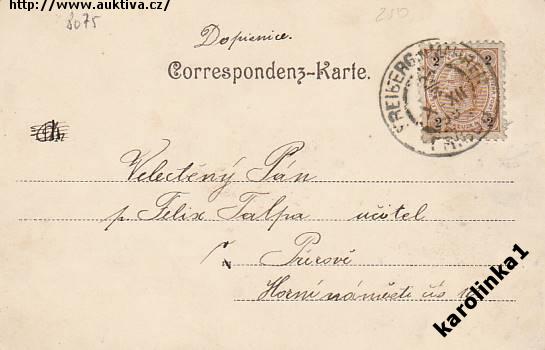 http://www.auktiva.cz/
8075
250
Dopisnice.
Correspondenz-Karte.
FREIBERG
2 2
2 2
Velectěný Pán
p. Felix Talpa učitel
v Přerově
Horní náměstí čís
karolinka1